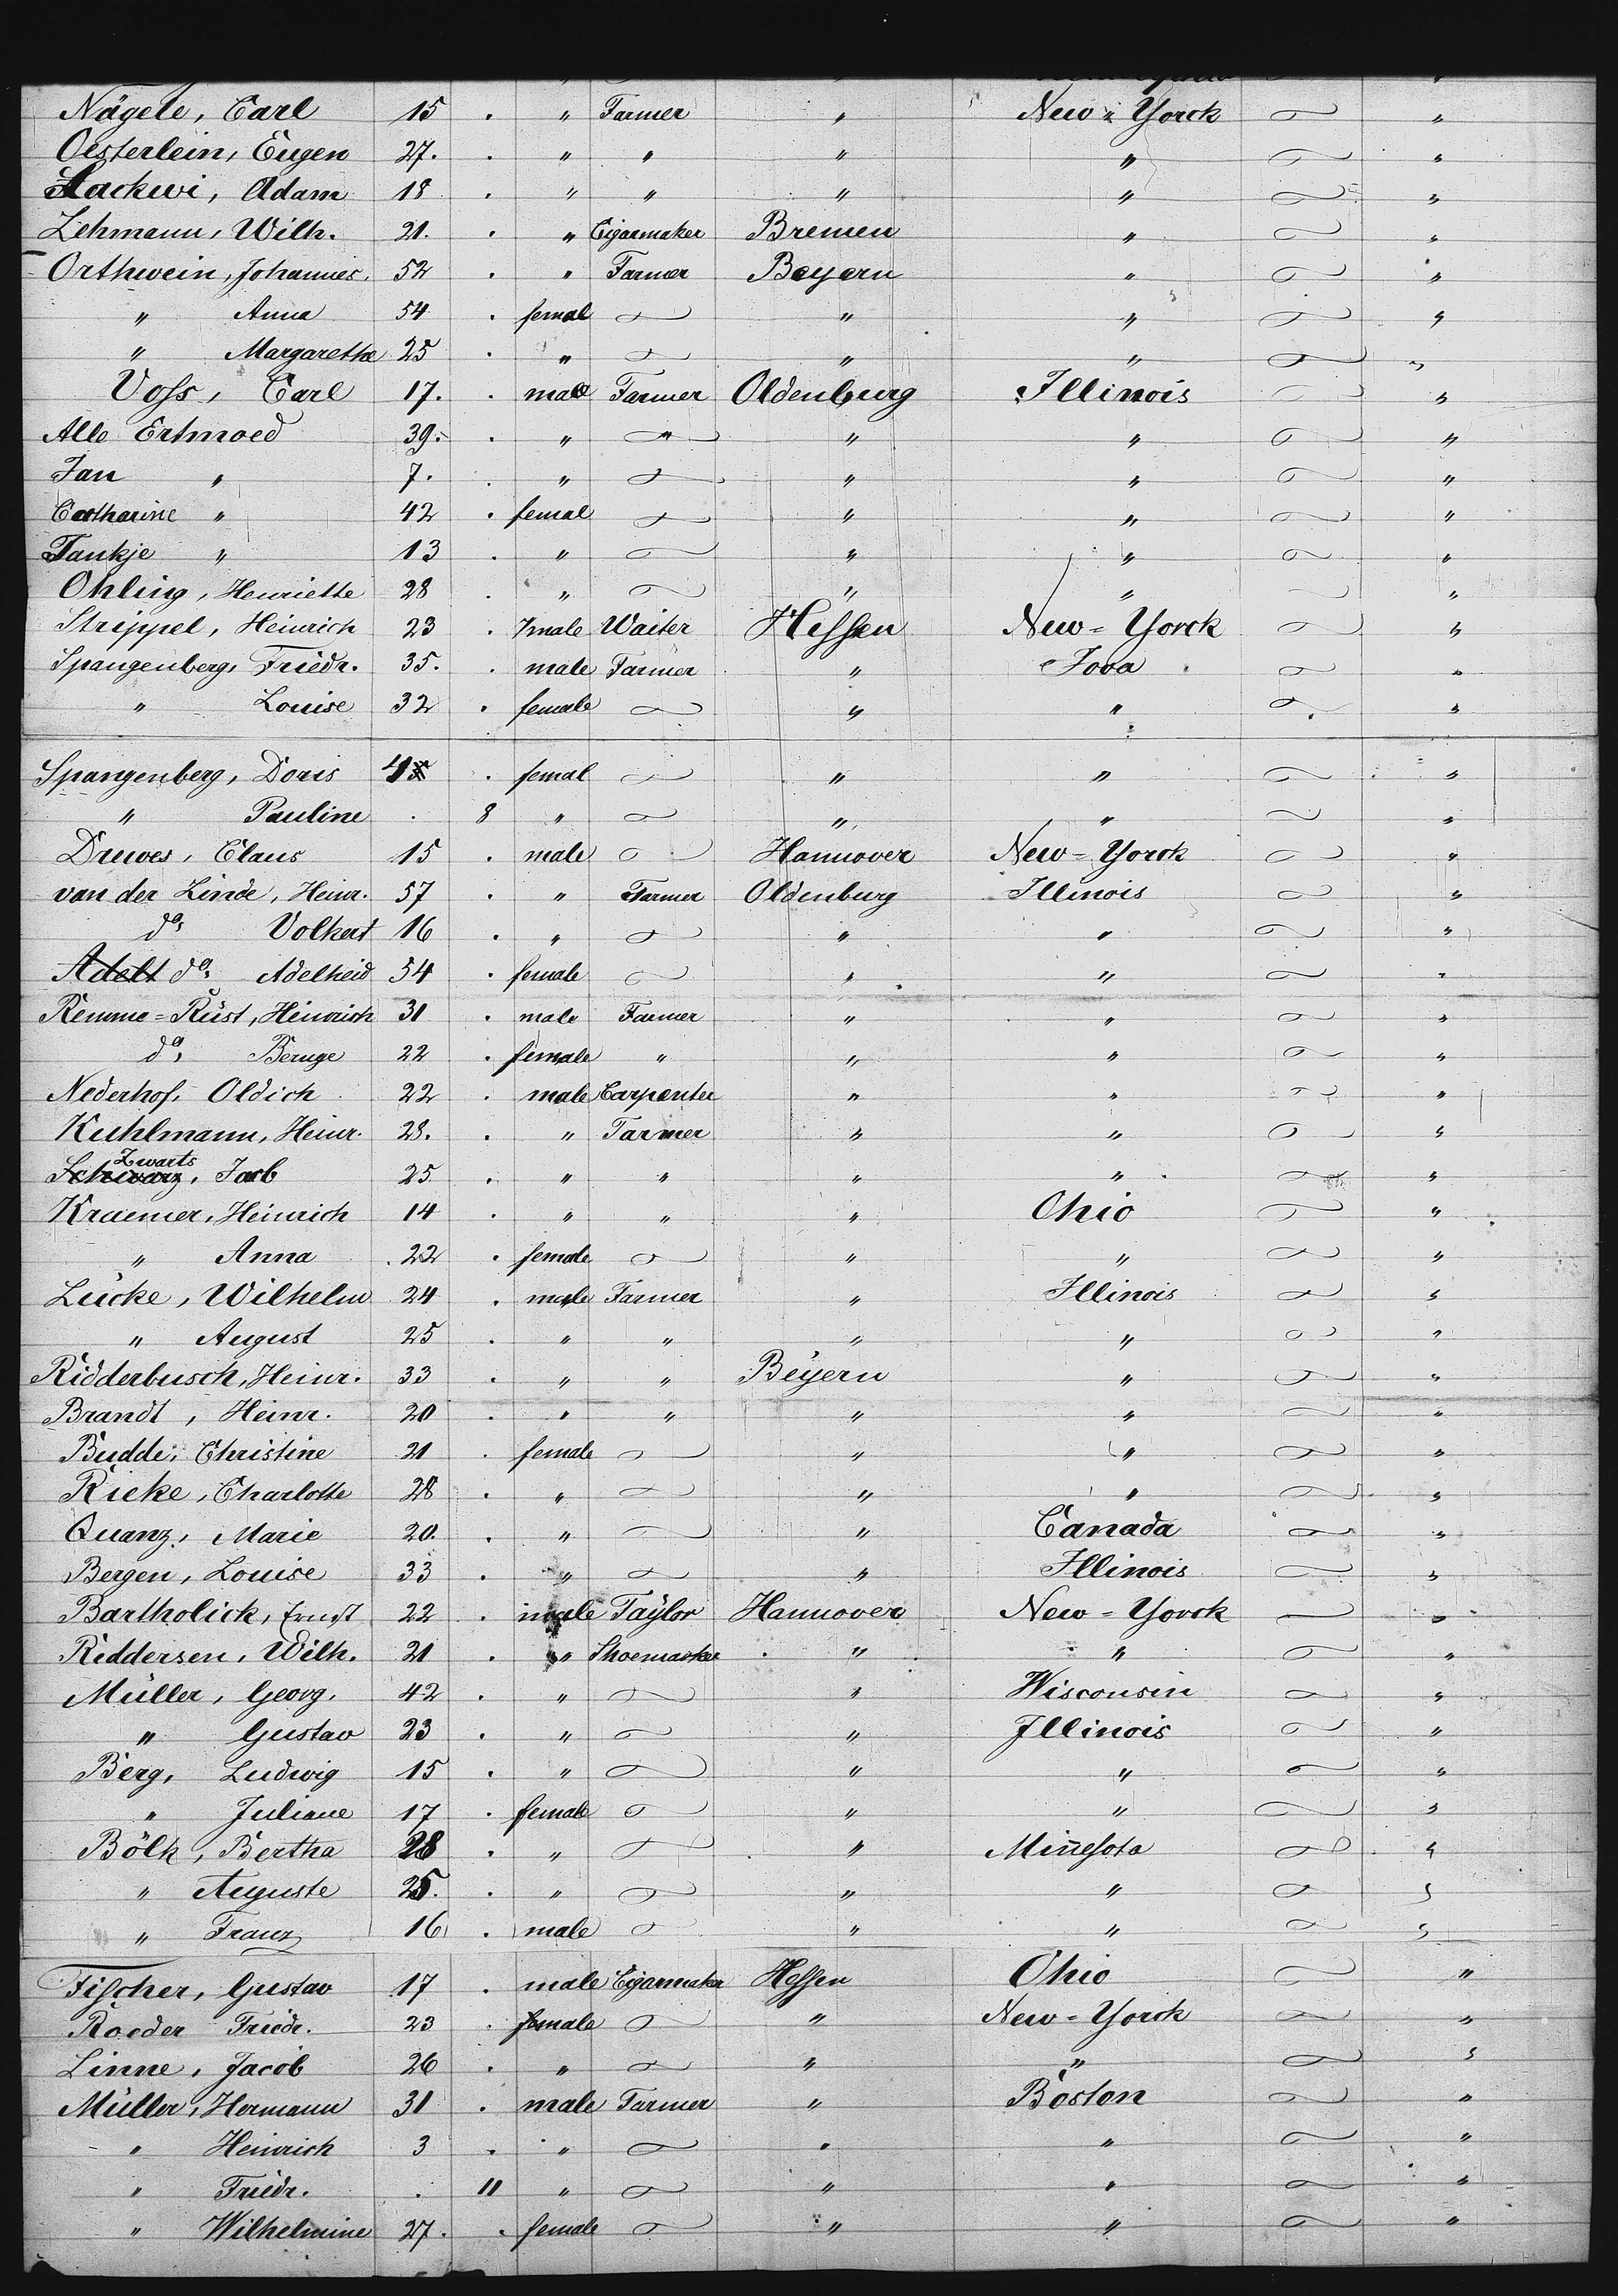 Nägele, Carl 15 . " Farmer " New=Yorck "
Oesterlein, Eugen 27. . " " " " "
Sackwi, Adam 18 . " " " " "
Lehmann, Wilh. 21. . " Cigarmaker Bremen " "
Orthwein, Johannes. 52 . " Farmer Beyern " "
" Anna 54 . femal " " "
" Margarethe 25 . " " " "
Voss, Carl 17. . male Farmer Oldenburg Illinois "
Alle Ertmoed 39. . " " " " "
Jan " 7. . " " " "
Catharine " 42 . femal " " "
Tankje " 13 . " " " "
Ohling, Henriette 28 . " " " "
Strippel, Heinrich 23 . male Waiter Hessen New=Yorck "
Spangenberg, Friedr. 35. . male Farmer " Iova "
" Louise 32 . female " " "
Spangenberg, Doris 4 . femal " " "
" Pauline . 8 " " " "
Druves, Claus 15 . male Hannover New=Yorck "
van der Linde, Heinr. 57 . " Farmer Oldenburg Illinois "
do, Volkert 16 . " " " "
Adelt do, Adelheid 54 . female " " "
Remme=Rüst, Heinrich 31 . male Farmer " " "
do, Beruge 22 . female " " " "
Nederhof, Oldich 22 . male Carpenter " " "
Kuhlmann, Heinr. 28. . " Farmer " " "
Zwarts
Schwarz, Jacb 25 . " " " " "
Kraemer, Heinrich 14 . " " " Ohio "
" Anna 22 . female " " "
Lücke, Wilhelm 24 . male Farmer " Illinois "
" August 25 . " " " " "
Ridderbusch, Heinr. 33 . " " Beyern " "
Brandt, Heinr. 20 . " " " " "
Budde, Christine 21 . female " " "
Rieke, Charlotte 28 . " " " "
Quanz, Marie 20. . " " Canada "
Bergen, Louise 33 . " " Illinois "
Bartholick, Ernst 22 . male Taylor Hannover New=Yorck "
Riddersen, Wilh. 21 . " Shoemaker " " "
Müller, Georg. 42 . " " Wisconsin "
" Gustav 23 . " " Illinois "
Berg, Ludwig 15 . " " " "
" Juliane 17 . female " " "
Bölk, Bertha 28 . " " Minnesota "
" Auguste 25. . " " " "
" Franz 16 . male " " "
Fischer, Gustav 17 . male Cigarmaker Hessen Ohio "
Roeder Friedr. 23 . female " New=Yorck "
Linne, Jacob 26 . " " " "
Müller, Hermann 31 . male Farmer " Boston "
" Heinrich 3 . " " " "
" Friedr. . 11 " " " "
" Wilhelmine 27. . female " " "